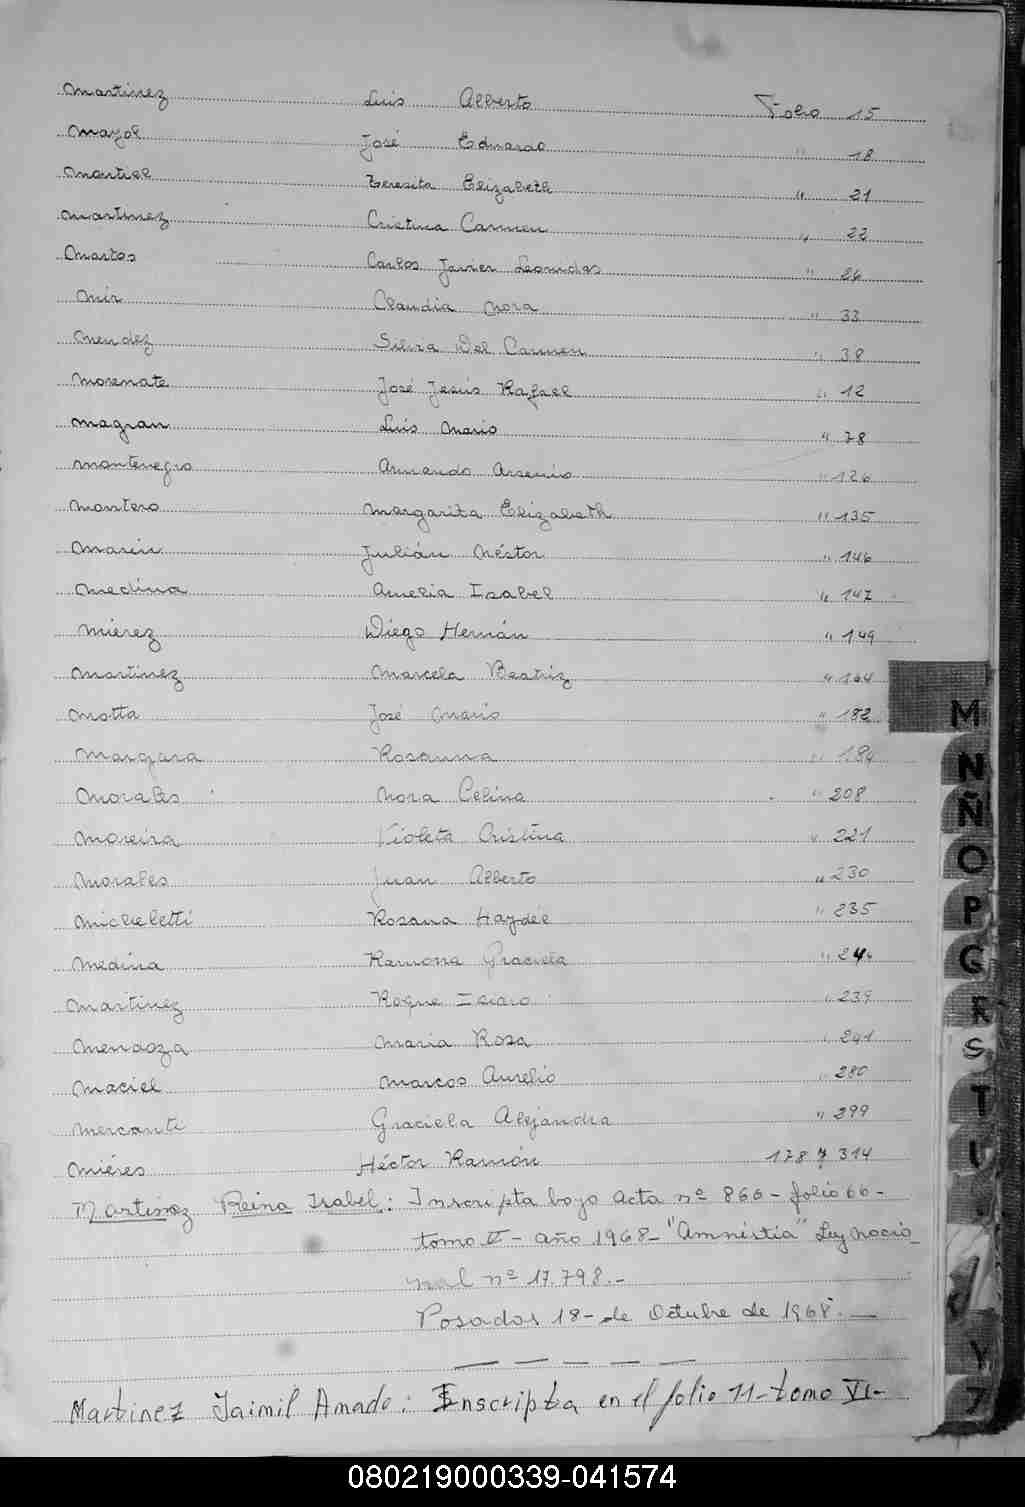 Martinez Luis Alberto Folio 15
Mayol José Eduardo " 18
Montiel Teresita Elizabeth " 21
Martinez Cristina Carmen " 22
Martos Carlos Javier Leonidas " 26
Mir Claudia Nora " 33
Mendez Silvia Del Carmen " 38
Morenate José Jesús Rafael " 12
Magran Luis Mario " 78
Montenegro Armando Arsenio " 126
Montero Margarita Elizabeth " 135
Marin Julián Néstor " 146
Medina Amelia Isabel " 147
Mierez Diego Hernán " 149
Martinez Marcela Beatriz " 164
Motta José Mario " 182
Rosanna " 184
Morales Nora Celina " 208
Moreira Violeta Cristina " 221
Morales Juan Alberto " 230
Micheletti Rosana Haydée " 235
Medina Ramona Graciela "
Martinez Roque " 239
Mendoza Maria Rosa " 241
Maciel Marcos Aurelio " 280
Mercanti Graciela Alejandra " 299
Miéres Héctor Ramón 314
Martinez Reina Isabel: Inscripta bajo acta nº 866 - folio 66 -
tomo V - año 1968 - "Amnistia" Ley Nacio_
nal nº 17.798.-
Posadas 18 - de Octubre de 1968. —
— — — — —
Martinez Jaimil Amado: Inscripta en el folio 11 - tomo VI -
M
N
Ñ
O
P
Q
R
S
T
U
V
Y
Z
080219000339-041574